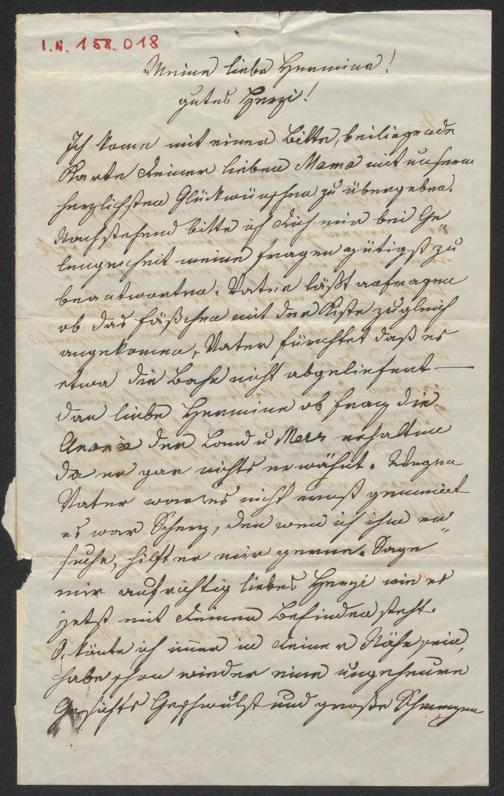 I.N. 158.018
Meine liebe Hermine!
gutes Herzi!
Ich kome mit einer Bitte, beiliegende
Karte Deiner lieben Mama mit unsern
herzlichsten Glückwünschen zu übergeben.
Nachstehend bitte ich Dich mir bei Ge
legenheit meine Fragen gütigst zu
beantworten. Vater läßt anfragen
ob das Fäßchen mit der Kiste zugleich
angekomen, Vater fürchtet daß es
etwa die Bahn nicht abgeliefert —
dan liebe Hermine ob Franz die
der Land u erhalten
da er gar nichts erwähnt. Wegen
Vater war es nicht ernst gemeint
es war Scherz, den wen ich ihn er
suche, hilft er mir gerne. Sage
mir aufrichtig liebes Herzi wie es
jetzt mit Deinen Befinden steht.
O, könte ich imer in Deiner Nähe sein,
habe schon wieder eine ungeheure
Gesichts Geschwulst und große Schmerzen